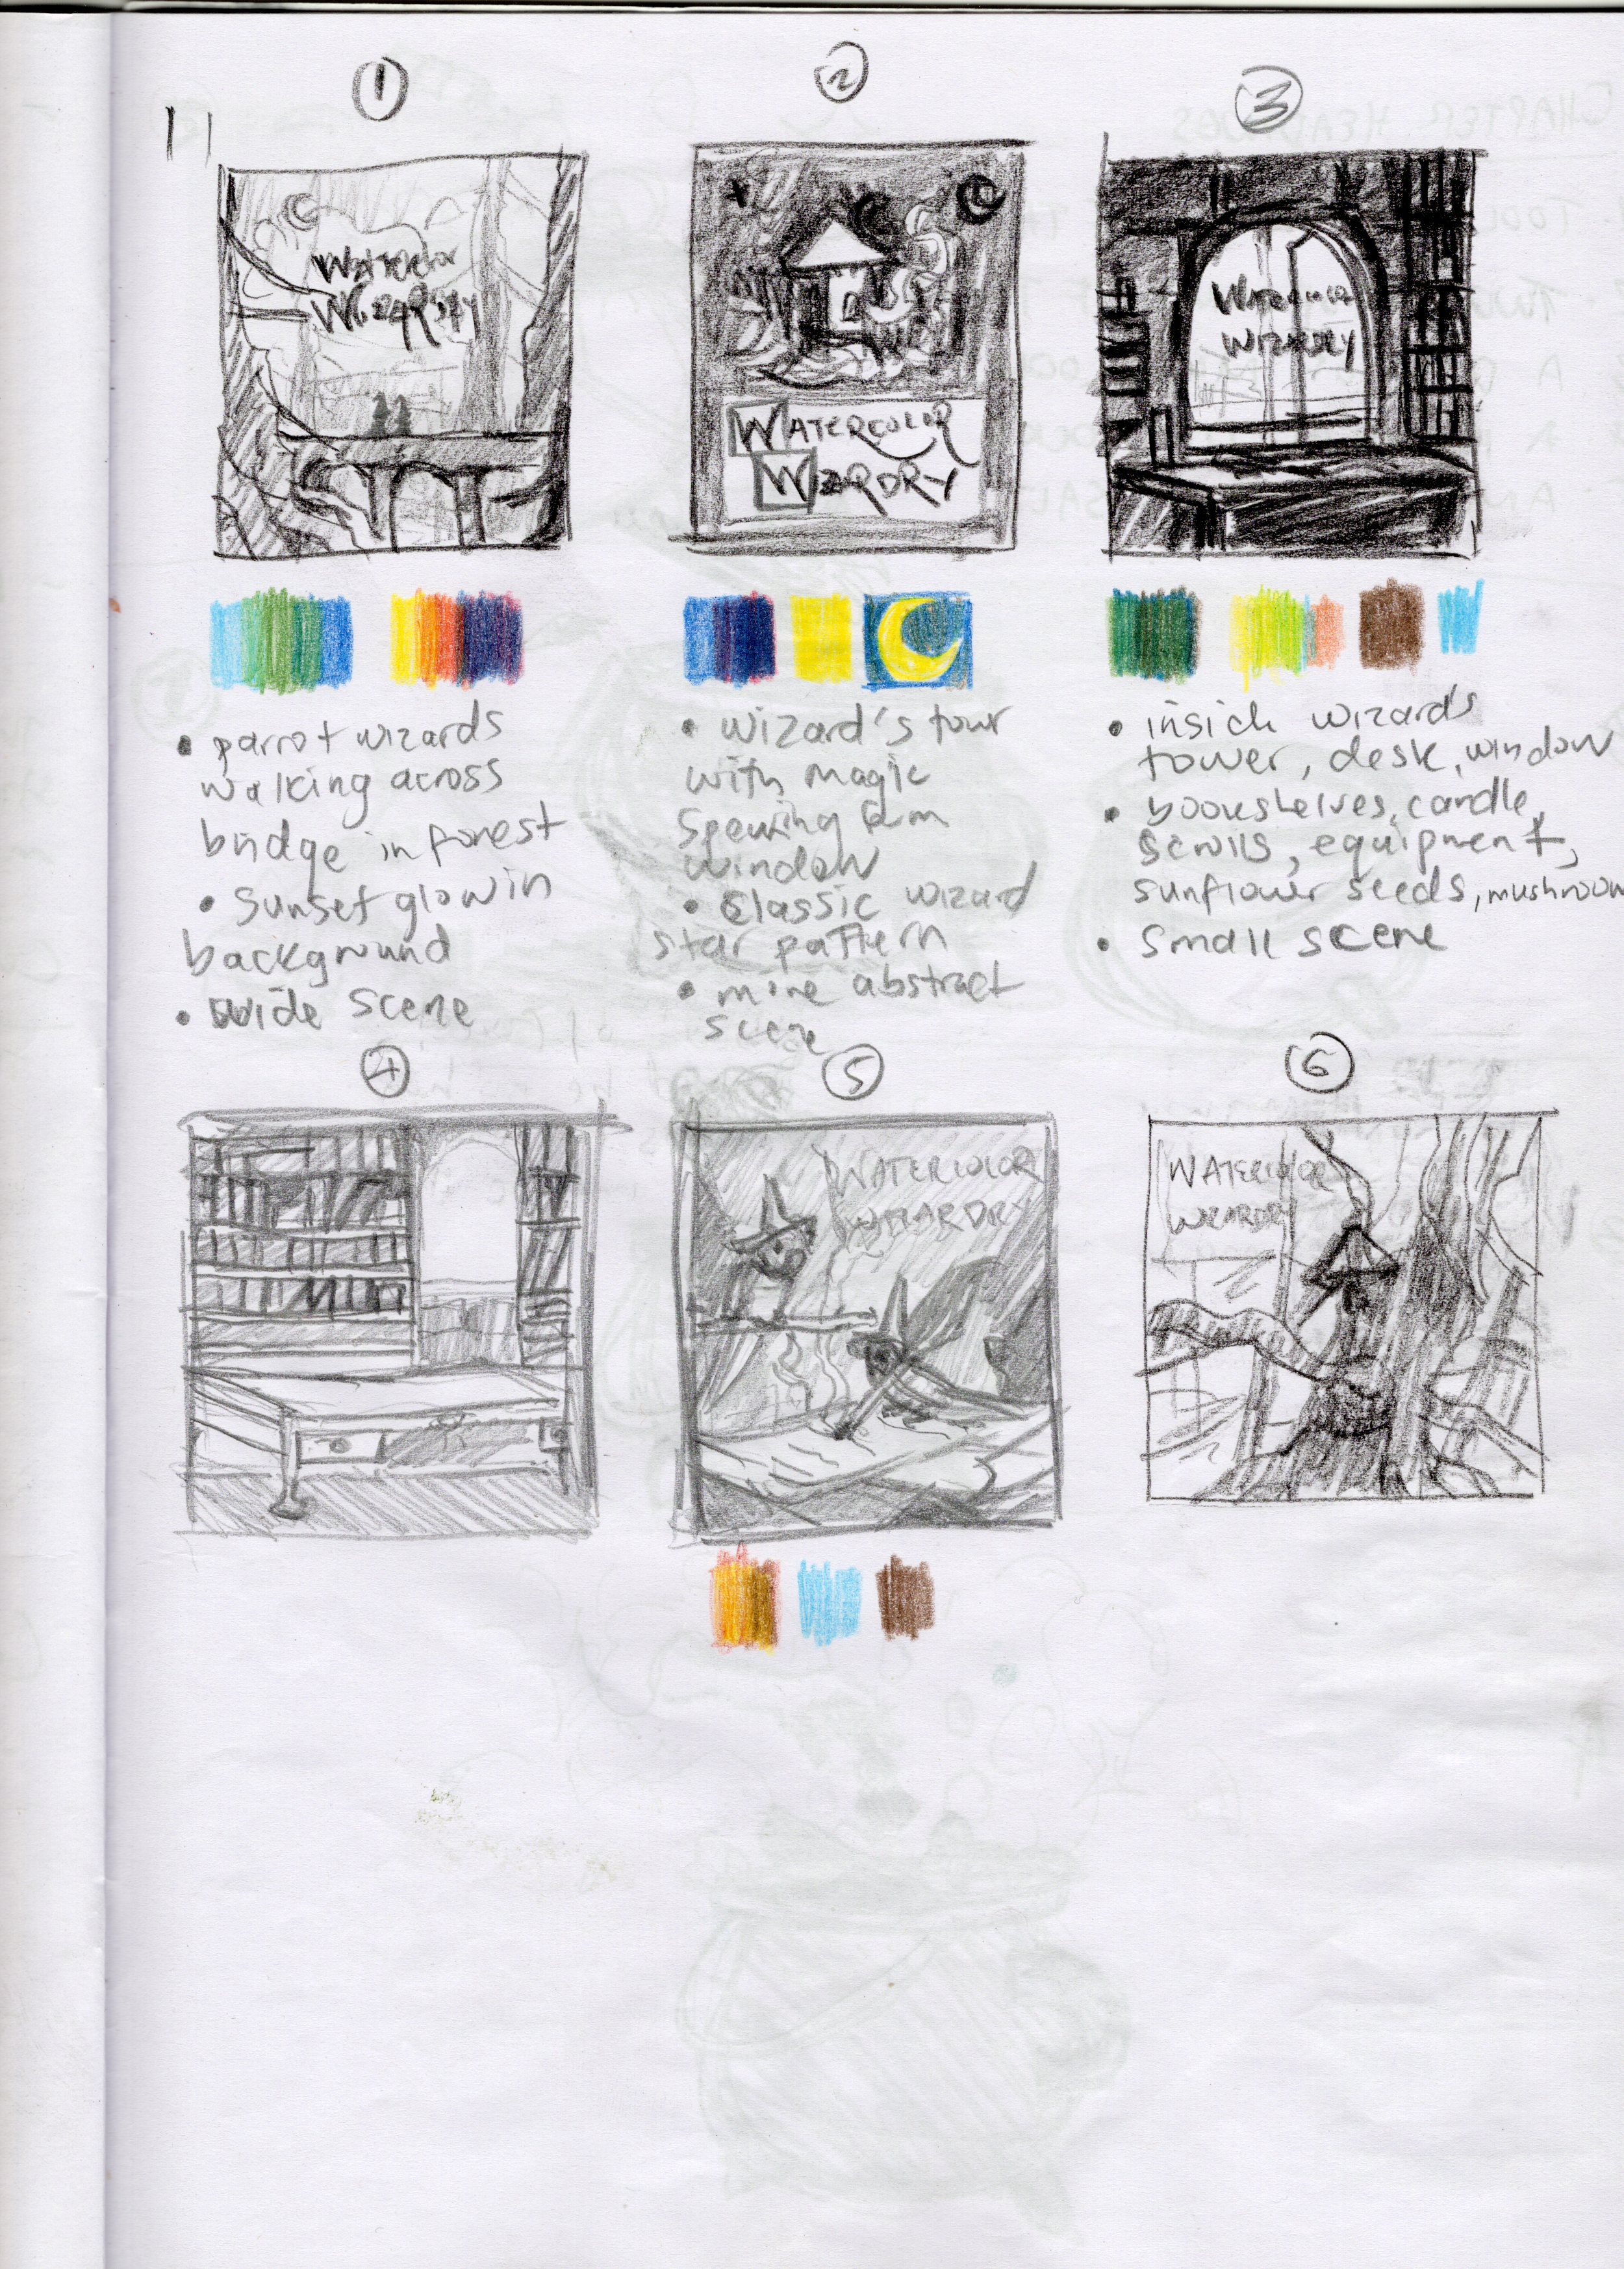 1
WATERCOLOR
WIZARDRY
• parrot wizards
walking across
bridge in forest
• Sunset glow in
background
• wide scene
2
WATERCOLOR
WIZARDRY
• wizard's towr
with magic
spewing from
window
• Classic wizard
star pattern
• more abstract
scene
3
WATERCOLOR
WIZARDRY
• inside wizards
tower, desk, window
• bookshelves, candle,
scrolls, equipment,
sunflower seeds, mushroom
• small scene
4
5
WATERCOLOR
WIZARDRY
6
WATERCOLOR
WIZARDRY
CHARTER HEADINGS